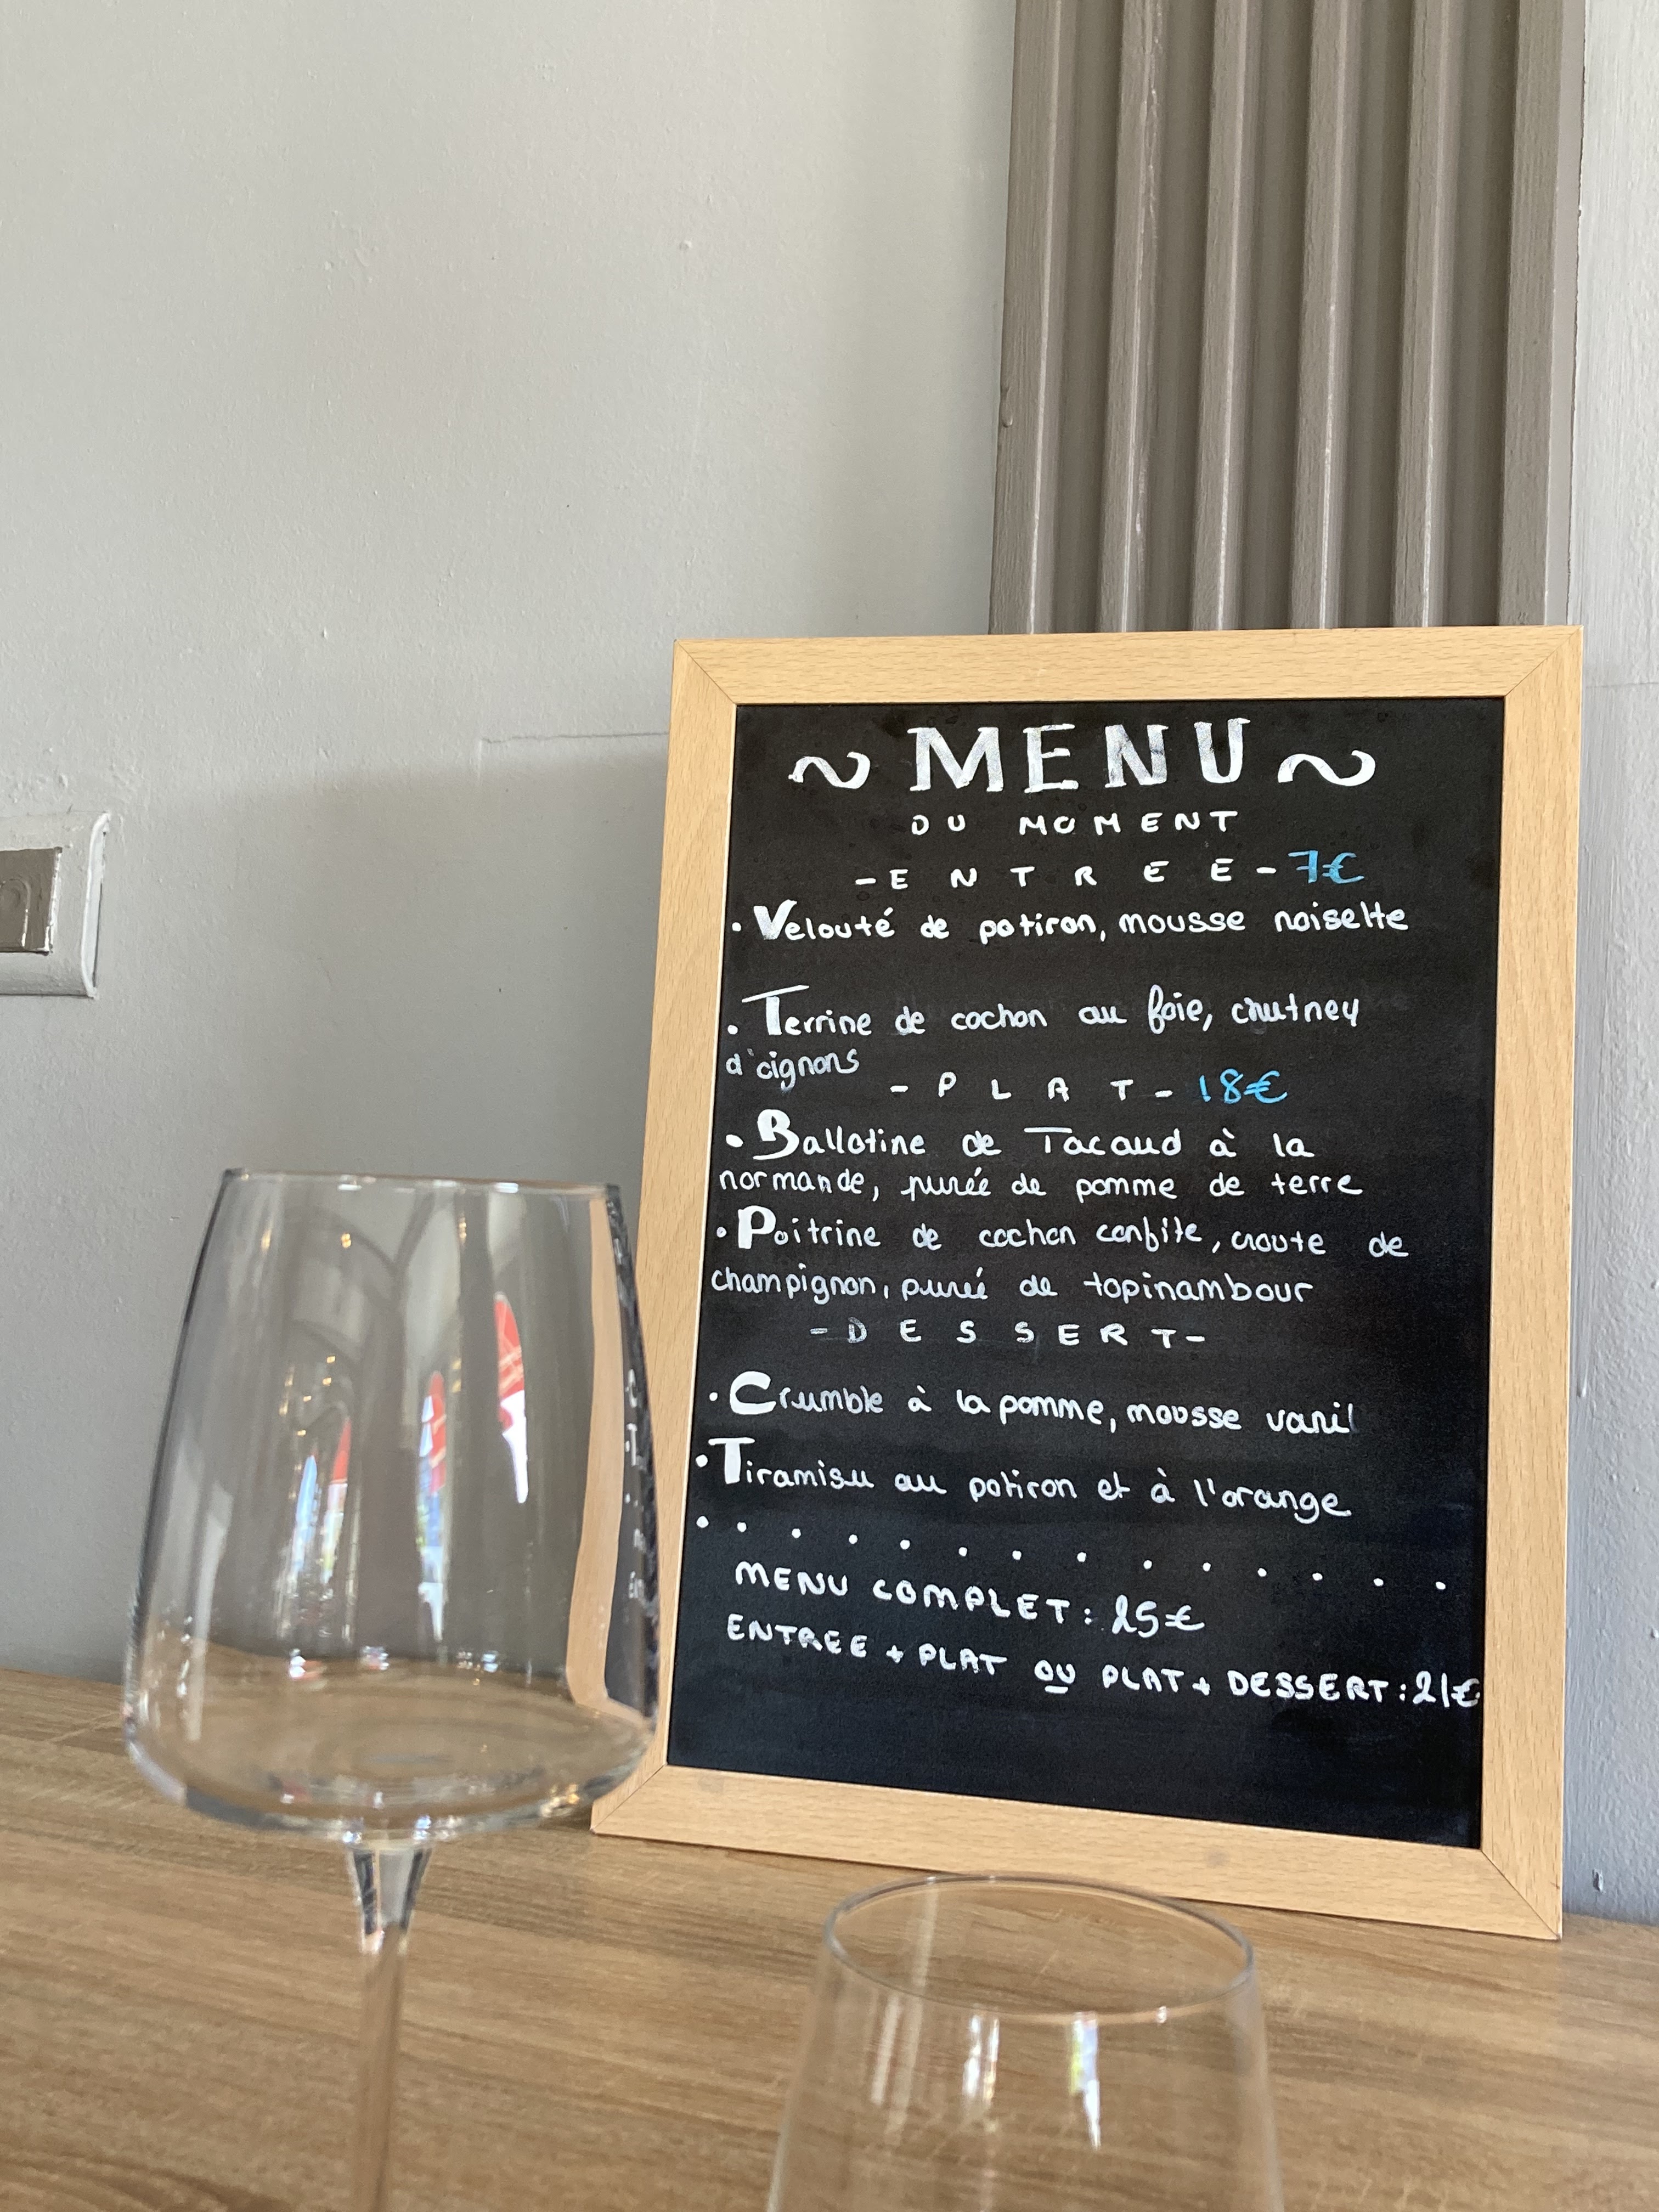 ~ MENU ~
DU MOMENT
- ENTREE - 7€
• Velouté de potiron, mousse noisette
• Terrine de cochon au foie, chutney
d'oignons
- PLAT - 18€
• Ballotine de Tacaud à la
normande, purée de pomme de terre
• Poitrine de cochon confite, croute de
champignon, purée de topinambour
- DESSERT -
• Crumble à la pomme, mousse vanil
• Tiramisu au potiron et à l'orange
• • • • • • • • • • • • • •
MENU COMPLET : 25€
ENTREE + PLAT OU PLAT + DESSERT : 21€